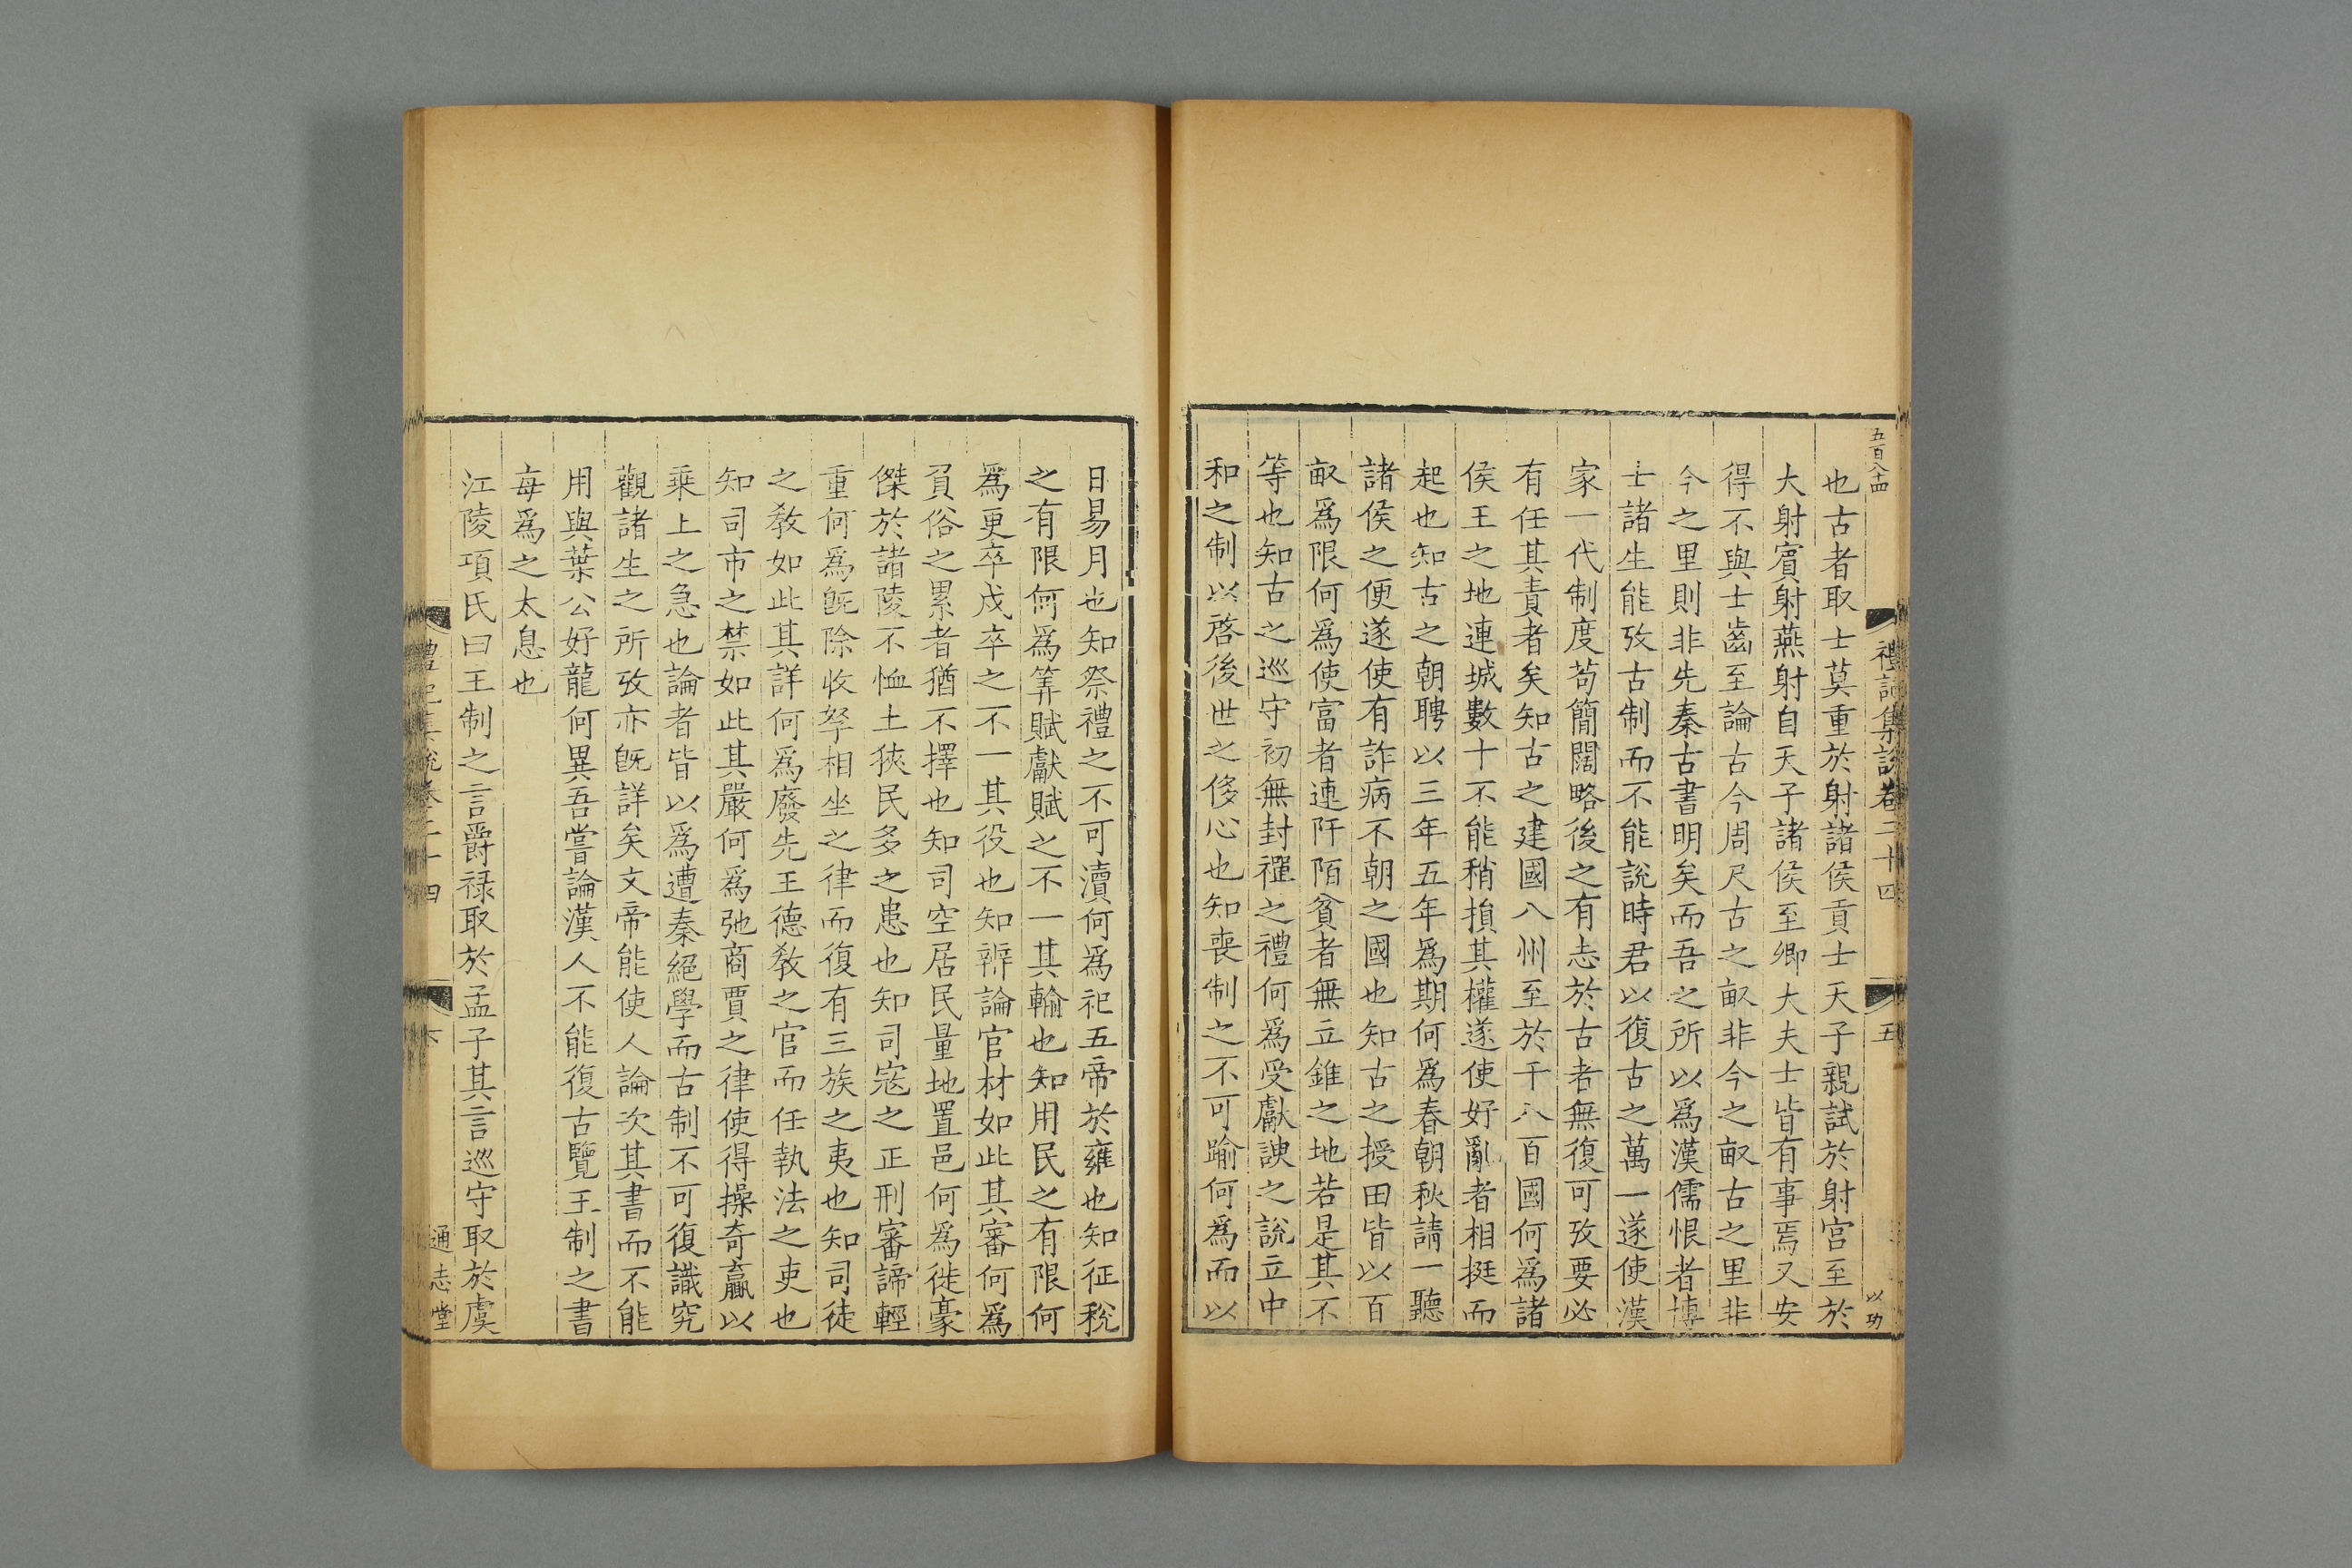 五百八十四
禮記集說卷二十四
五
以功
也古者取士莫重於射諸侯貢士天子親試於射宮至於
大射賓射燕射自天子諸侯至卿大夫士皆有事焉又安
得不與士齒至論古今周尺古之畝非今之畝古之里非
今之里則非先秦古書明矣而吾之所以爲漢儒恨者博
士諸生能攷古制而不能說時君以復古之萬一遂使漢
家一代制度苟簡闊略後之有志於古者無復可攷要必
有任其責者矣知古之建國八州至於千八百國何爲諸
侯王之地連城數十不能稍損其權遂使好亂者相挺而
起也知古之朝聘以三年五年爲期何爲春朝秋請一聽
諸侯之便遂使有詐病不朝之國也知古之授田皆以百
畝爲限何爲使富者連阡陌貧者無立錐之地若是其不
等也知古之巡守初無封禪之禮何爲受獻諛之說立中
和之制以啓後世之侈心也知喪制之不可踰何爲而以
日易月也知祭禮之不可瀆何爲祀五帝於雍也知征稅
之有限何爲筭賦獻賦之不一其輸也知用民之有限何
爲更卒戍卒之不一其役也知辨論官材如此其審何爲
負俗之累者猶不擇也知司空居民量地置邑何爲徙豪
傑於諸陵不恤土狹民多之患也知司寇之正刑審諦輕
重何爲旣除收孥相坐之律而復有三族之夷也知司徒
之敎如此其詳何爲廢先王德敎之官而任執法之吏也
知司市之禁如此其嚴何爲弛商賈之律使得操奇贏以
乘上之急也論者皆以爲遭秦絕學而古制不可復識究
觀諸生之所攷亦旣詳矣文帝能使人論次其書而不能
用與葉公好龍何異吾嘗論漢人不能復古覽王制之書
每爲之太息也
江陵項氏曰王制之言爵祿取於孟子其言巡守取於虞
禮記集說卷二十四
通志堂